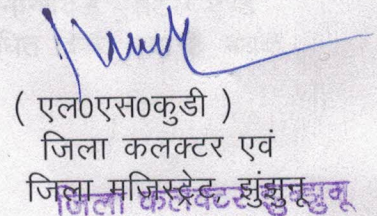 ( एल0एस0कुडी )
जिला कलक्टर एवं
जिला मजिस्ट्रेट, झुंझुनू
जिला कलक्टर झुन्झुनू